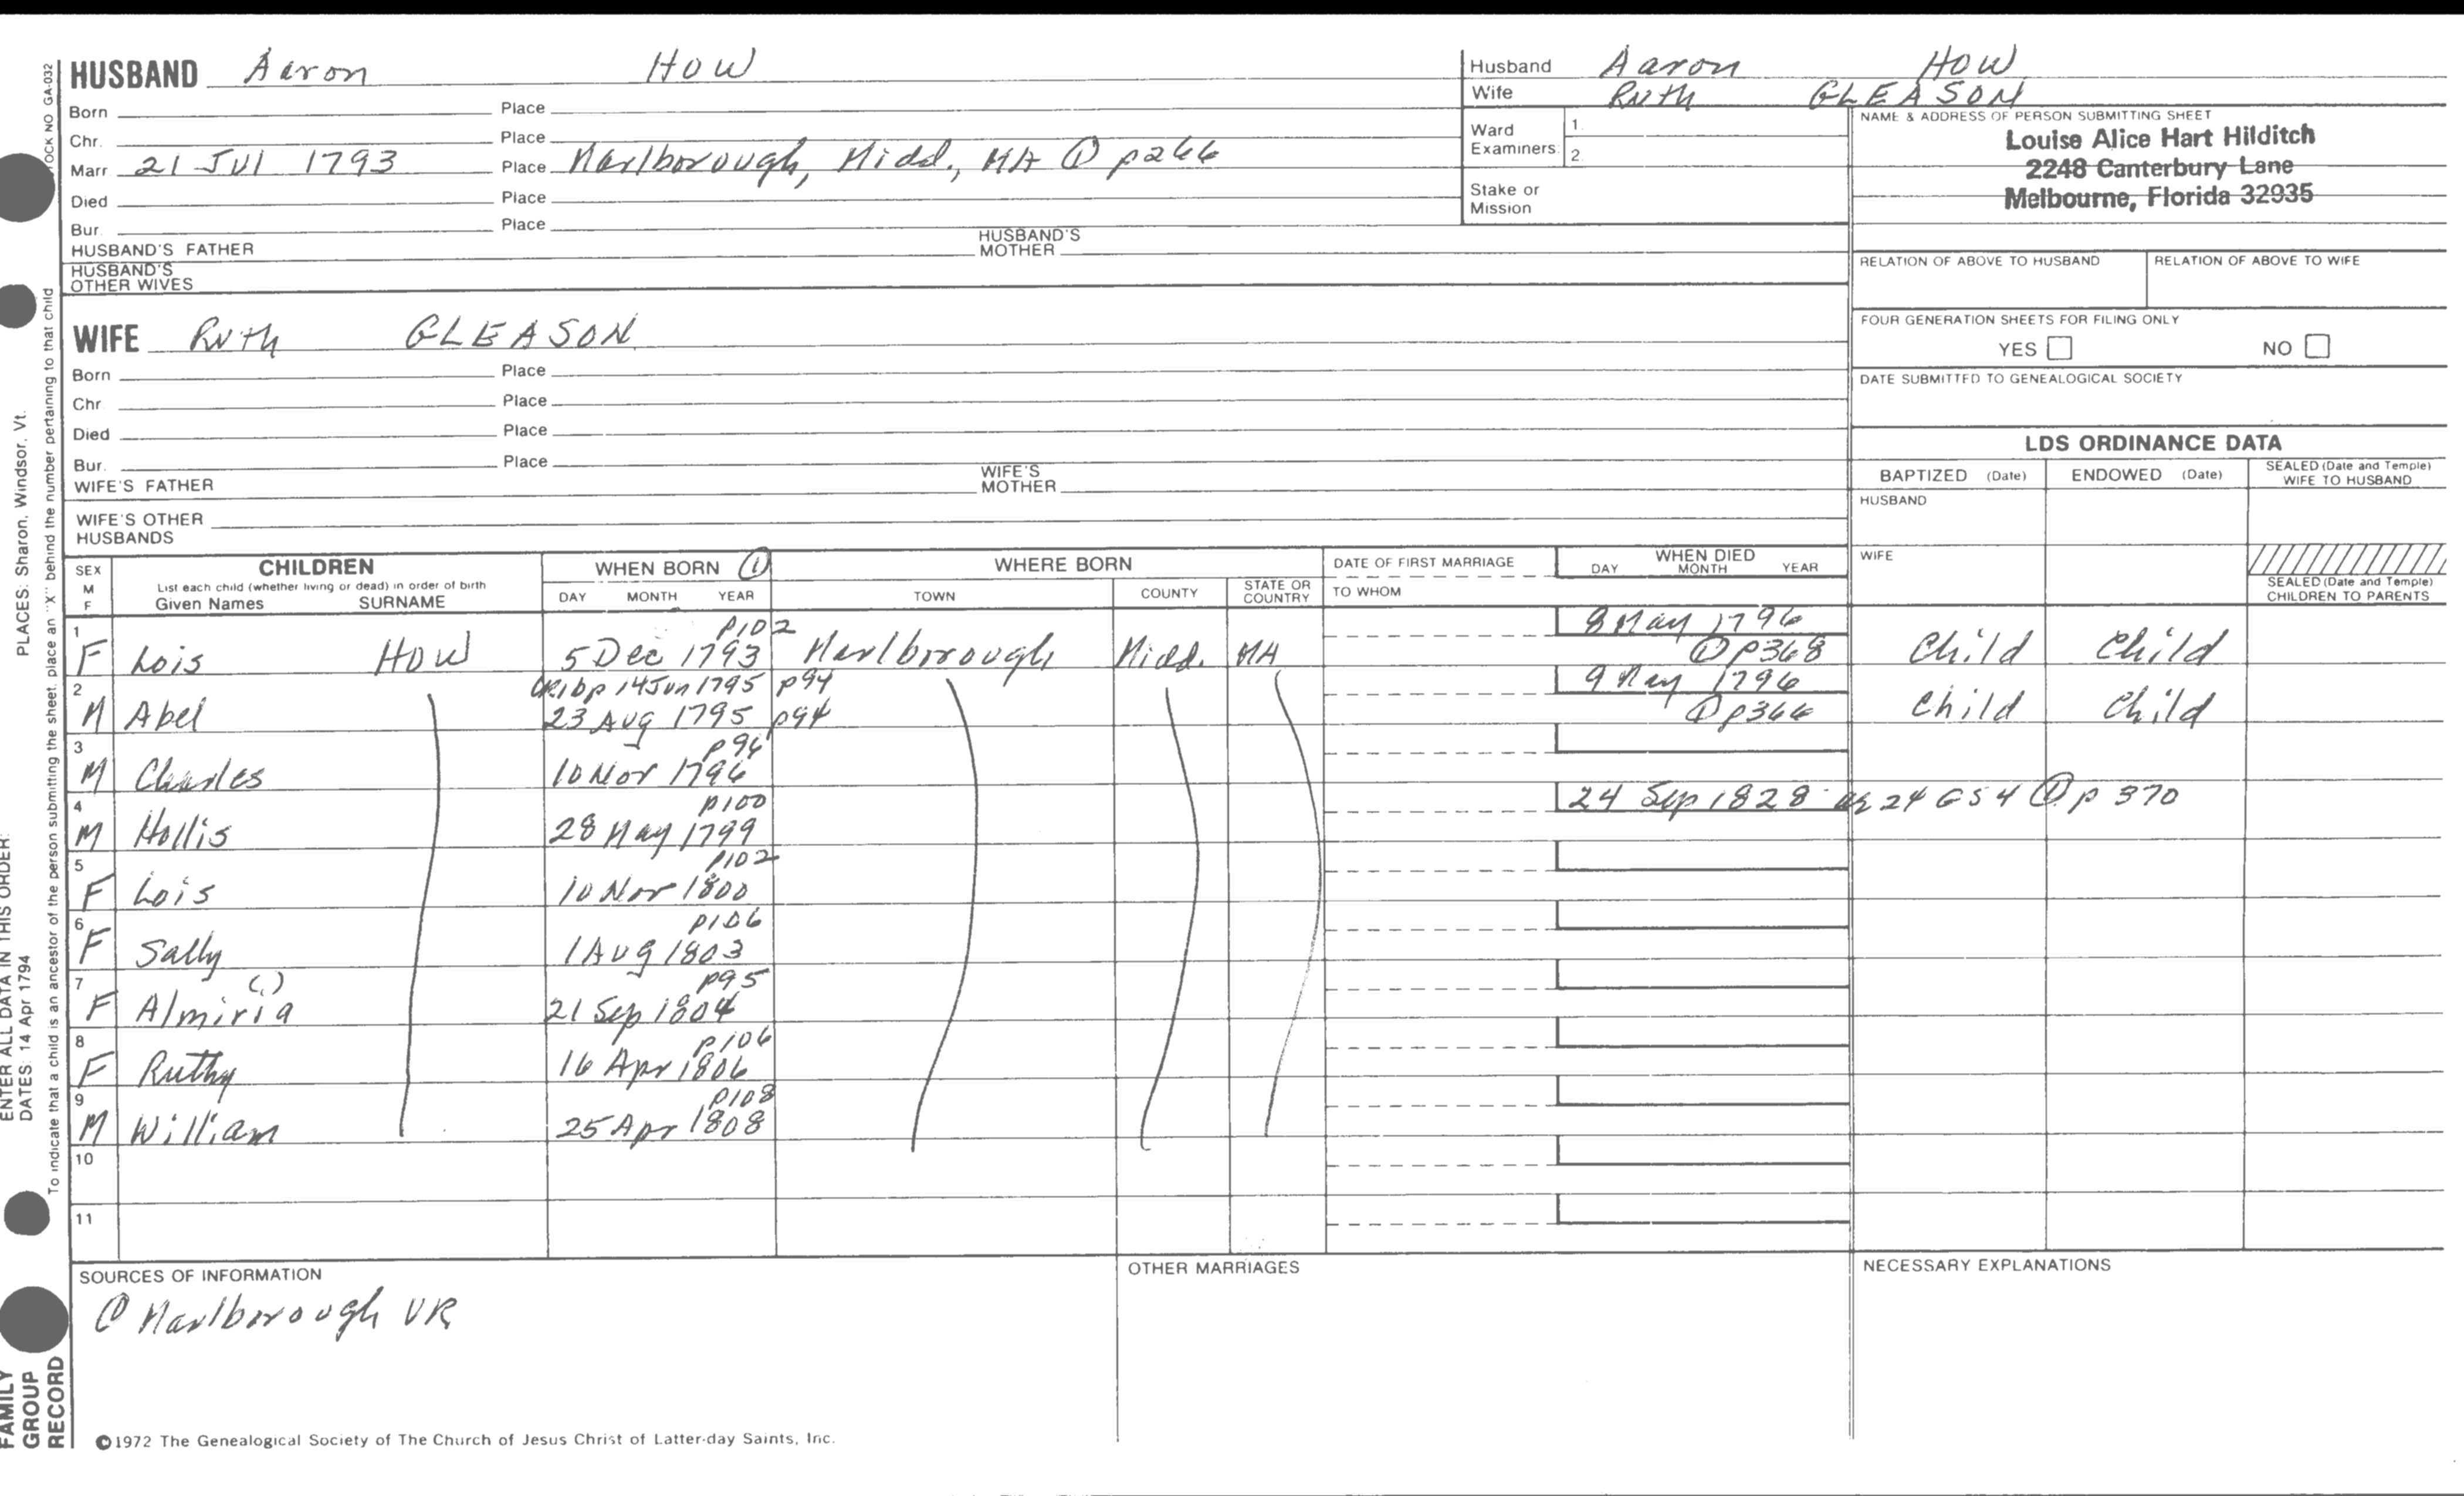 HUSBAND Aaron HOW
Born Place
Chr. Place
Marr 21 Jul 1793 Place Marlborough, Midd., MA ① p266
Died Place
Bur. Place
HUSBAND'S FATHER HUSBAND'S MOTHER
HUSBAND'S OTHER WIVES
WIFE Ruth GLEASON
Born Place
Chr Place
Died Place
Bur. Place
WIFE'S FATHER WIFE'S MOTHER
WIFE'S OTHER HUSBANDS
Husband Aaron HOW
Wife Ruth GLEASON
Ward Examiners: 1. 2.
Stake or Mission
NAME & ADDRESS OF PERSON SUBMITTING SHEET
Louise Alice Hart Hilditch
2248 Canterbury Lane
Melbourne, Florida 32935
RELATION OF ABOVE TO HUSBAND RELATION OF ABOVE TO WIFE
FOUR GENERATION SHEETS FOR FILING ONLY
YES NO
DATE SUBMITTED TO GENEALOGICAL SOCIETY
LDS ORDINANCE DATA
BAPTIZED (Date) ENDOWED (Date) SEALED (Date and Temple) WIFE TO HUSBAND
HUSBAND
WIFE
SEALED (Date and Temple) CHILDREN TO PARENTS
SEX M F CHILDREN List each child (whether living or dead) in order of birth Given Names SURNAME
WHEN BORN ① DAY MONTH YEAR
WHERE BORN TOWN COUNTY STATE OR COUNTRY
DATE OF FIRST MARRIAGE TO WHOM
WHEN DIED DAY MONTH YEAR
1 p102 8 May 1796
F Lois HOW 5 Dec 1793 Marlborough Midd. MA ① p368 Child Child
2 CR1 bp 14 Jun 1795 p94 9 May 1796
M Abel 23 Aug 1795 p94 ① p366 Child Child
3 p96
M Charles 10 Nov 1796
4 p100 24 Sep 1828 ag 24 GS4 ① p 370
M Hollis 28 May 1799
5 p102
F Lois 10 Nov 1800
6 p106
F Sally 1 Aug 1803
7 (,) p95
F Almiria 21 Sep 1804
8 p106
F Ruthy 16 Apr 1806
9 p108
M William 25 Apr 1808
10
11
SOURCES OF INFORMATION
① Marlborough VR
OTHER MARRIAGES
NECESSARY EXPLANATIONS
©1972 The Genealogical Society of The Church of Jesus Christ of Latter-day Saints, Inc.
OCK NO GA-032
To indicate that a child is an ancestor of the person submitting the sheet, place an "X" behind the number pertaining to that child
ENTER ALL DATA IN THIS ORDER:
DATES: 14 Apr 1794 PLACES: Sharon, Windsor, Vt.
FAMILY
GROUP
RECORD